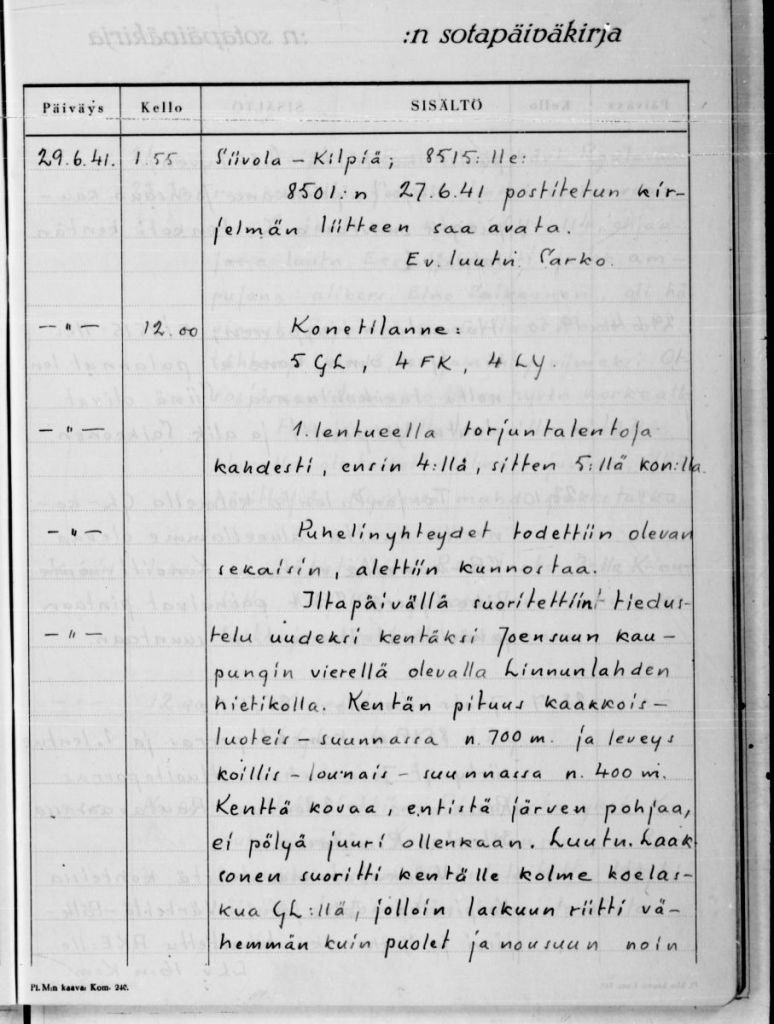 :n sotapäiväkirja
Päiväys Kello SISÄLTÖ
29.6.41. 1.55 Siivola – Kilpiä; 8515:lle:
8501:n 27.6.41 postitetun kir-
jelmän liitteen saa avata.
Ev.luutn. Sarko.
– " – 12.00 Konetilanne:
5 GL, 4 FK, 4 LY.
– " – 1.lentueella torjuntalentoja
kahdesti, ensin 4:llä, sitten 5:llä kon:lla.
– " – Puhelinyhteydet todettiin olevan
sekaisin, alettiin kunnostaa.
Iltapäivällä suoritettiin tiedus-
– " – telu uudeksi kentäksi Joensuun kau-
pungin vierellä olevalla Linnunlahden
hietikolla. Kentän pituus kaakkois-
luoteis-suunnassa n. 700 m. ja leveys
koillis-lounais-suunnassa n. 400 m.
Kenttä kovaa, entistä järven pohjaa,
ei pölyä juuri ollenkaan. Luutn. Laak-
sonen suoritti kentälle kolme koelas-
kua GL:llä, jolloin laskuun riitti vä-
hemmän kuin puolet ja nousuun noin
Pt. M:n kaava: Kom. 240.